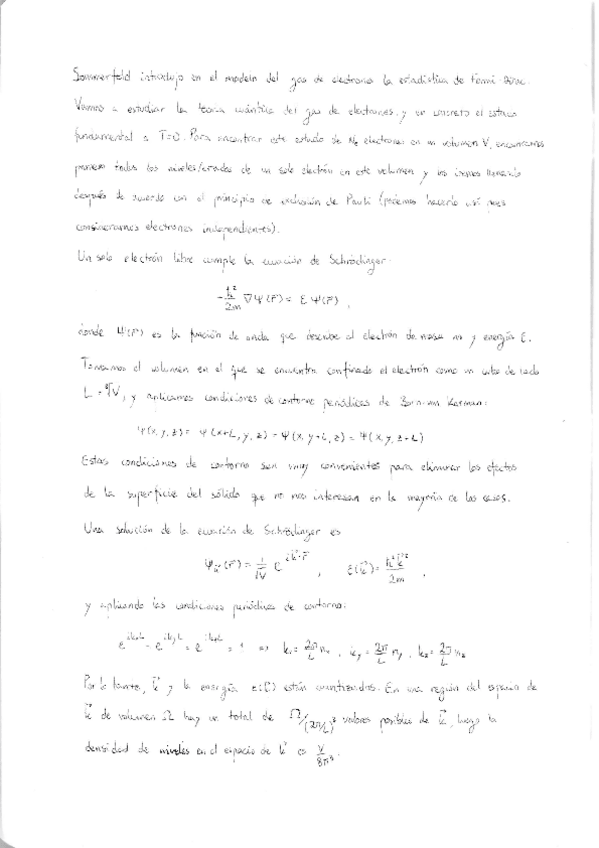 Sommerfeld introdujo en el modelo del gas de electrones la estadística de Fermi-Dirac.
Vamos a estudiar la teoría cuántica del gas de electrones, y en concreto el estado
fundamental a T=0. Para encontrar este estado de Ne electrones en un volumen V, encontramos
primero todos los niveles/estados de un solo electrón en este volumen y los iremos llenando
después de acuerdo con el principio de exclusión de Pauli (podemos hacerlo así pues
consideramos electrones independientes).
Un solo electrón libre cumple la ecuación de Schrödinger:
-ℏ²/2m ∇Ψ(r⃗) = ε Ψ(r⃗),
donde Ψ(r⃗) es la función de onda que describe al electrón de masa m y energía ε.
Tomamos el volumen en el que se encuentra confinado el electrón como un cubo de lado
L = ∛V, y aplicamos condiciones de contorno periódicas de Born-von Karman:
Ψ(x, y, z) = Ψ(x+L, y, z) = Ψ(x, y+L, z) = Ψ(x, y, z+L)
Estas condiciones de contorno son muy convenientes para eliminar los efectos
de la superficie del sólido que no nos interesan en la mayoría de los casos.
Una solución de la ecuación de Schrödinger es
Ψk⃗(r⃗) = 1/√V e^{ik⃗·r⃗} , ε(k⃗) = ℏ²k⃗²/2m ,
y aplicando las condiciones periódicas de contorno:
e^{ikxL} = e^{ikyL} = e^{ikzL} = 1 ⇒ kx = 2π/L nx , ky = 2π/L ny , kz = 2π/L nz
Por lo tanto, k⃗ y la energía ε(k⃗) están cuantizados. En una región del espacio de
k⃗ de volumen Ω hay un total de Ω/(2π/L)³ valores posibles de k⃗, luego la
densidad de niveles en el espacio de k⃗ es V/8π³.